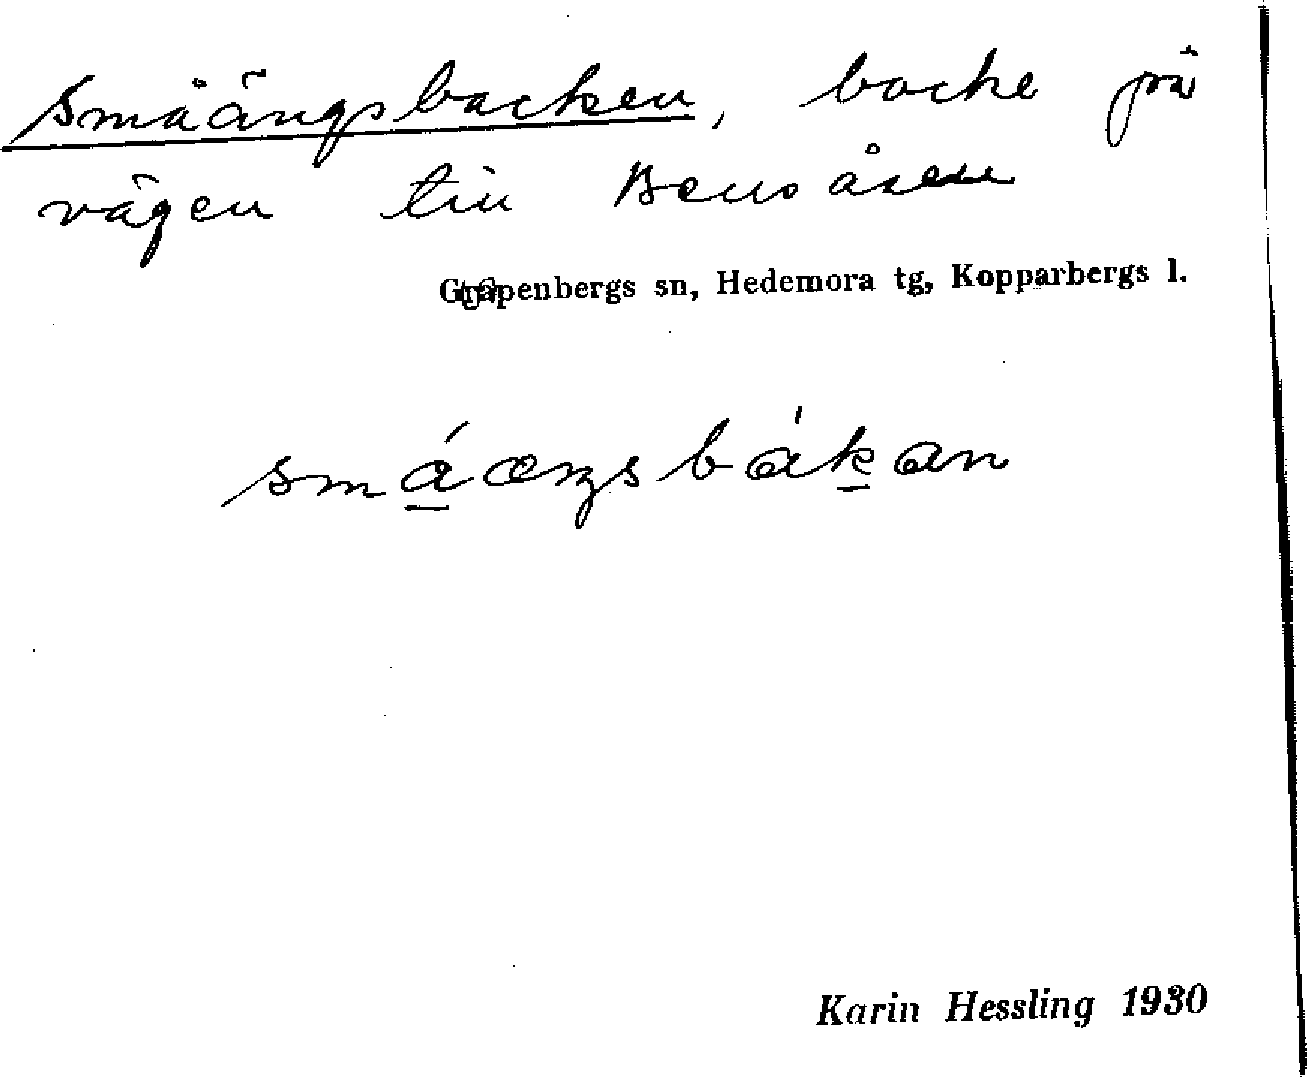 Småängsbacken, backe på
vägen till Bensåsen
Garpenbergs sn, Hedemora tg, Kopparbergs l.
Karin Hessling 1930